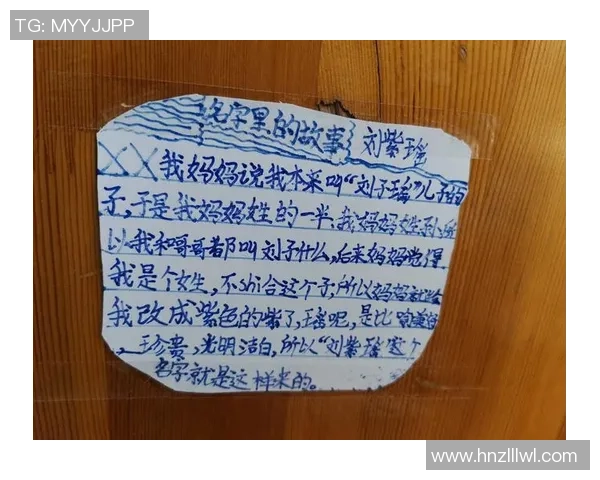 TG: MYYJJPP
名字里的故事 刘紫瑶
我妈妈说我本来叫“刘子瑶”儿子的
子,于是我妈妈姓的一半,我妈妈姓孙,所
以我和哥哥都叫刘子什么,后来妈妈觉得
我是个女生,不shi合这个子,所以妈妈就给
我改成紫色的紫了,瑶呢,是比喻美好
珍贵,光明洁白,所以“刘紫瑶”这个
名字就是这样来的。
www.hnzlllwl.com